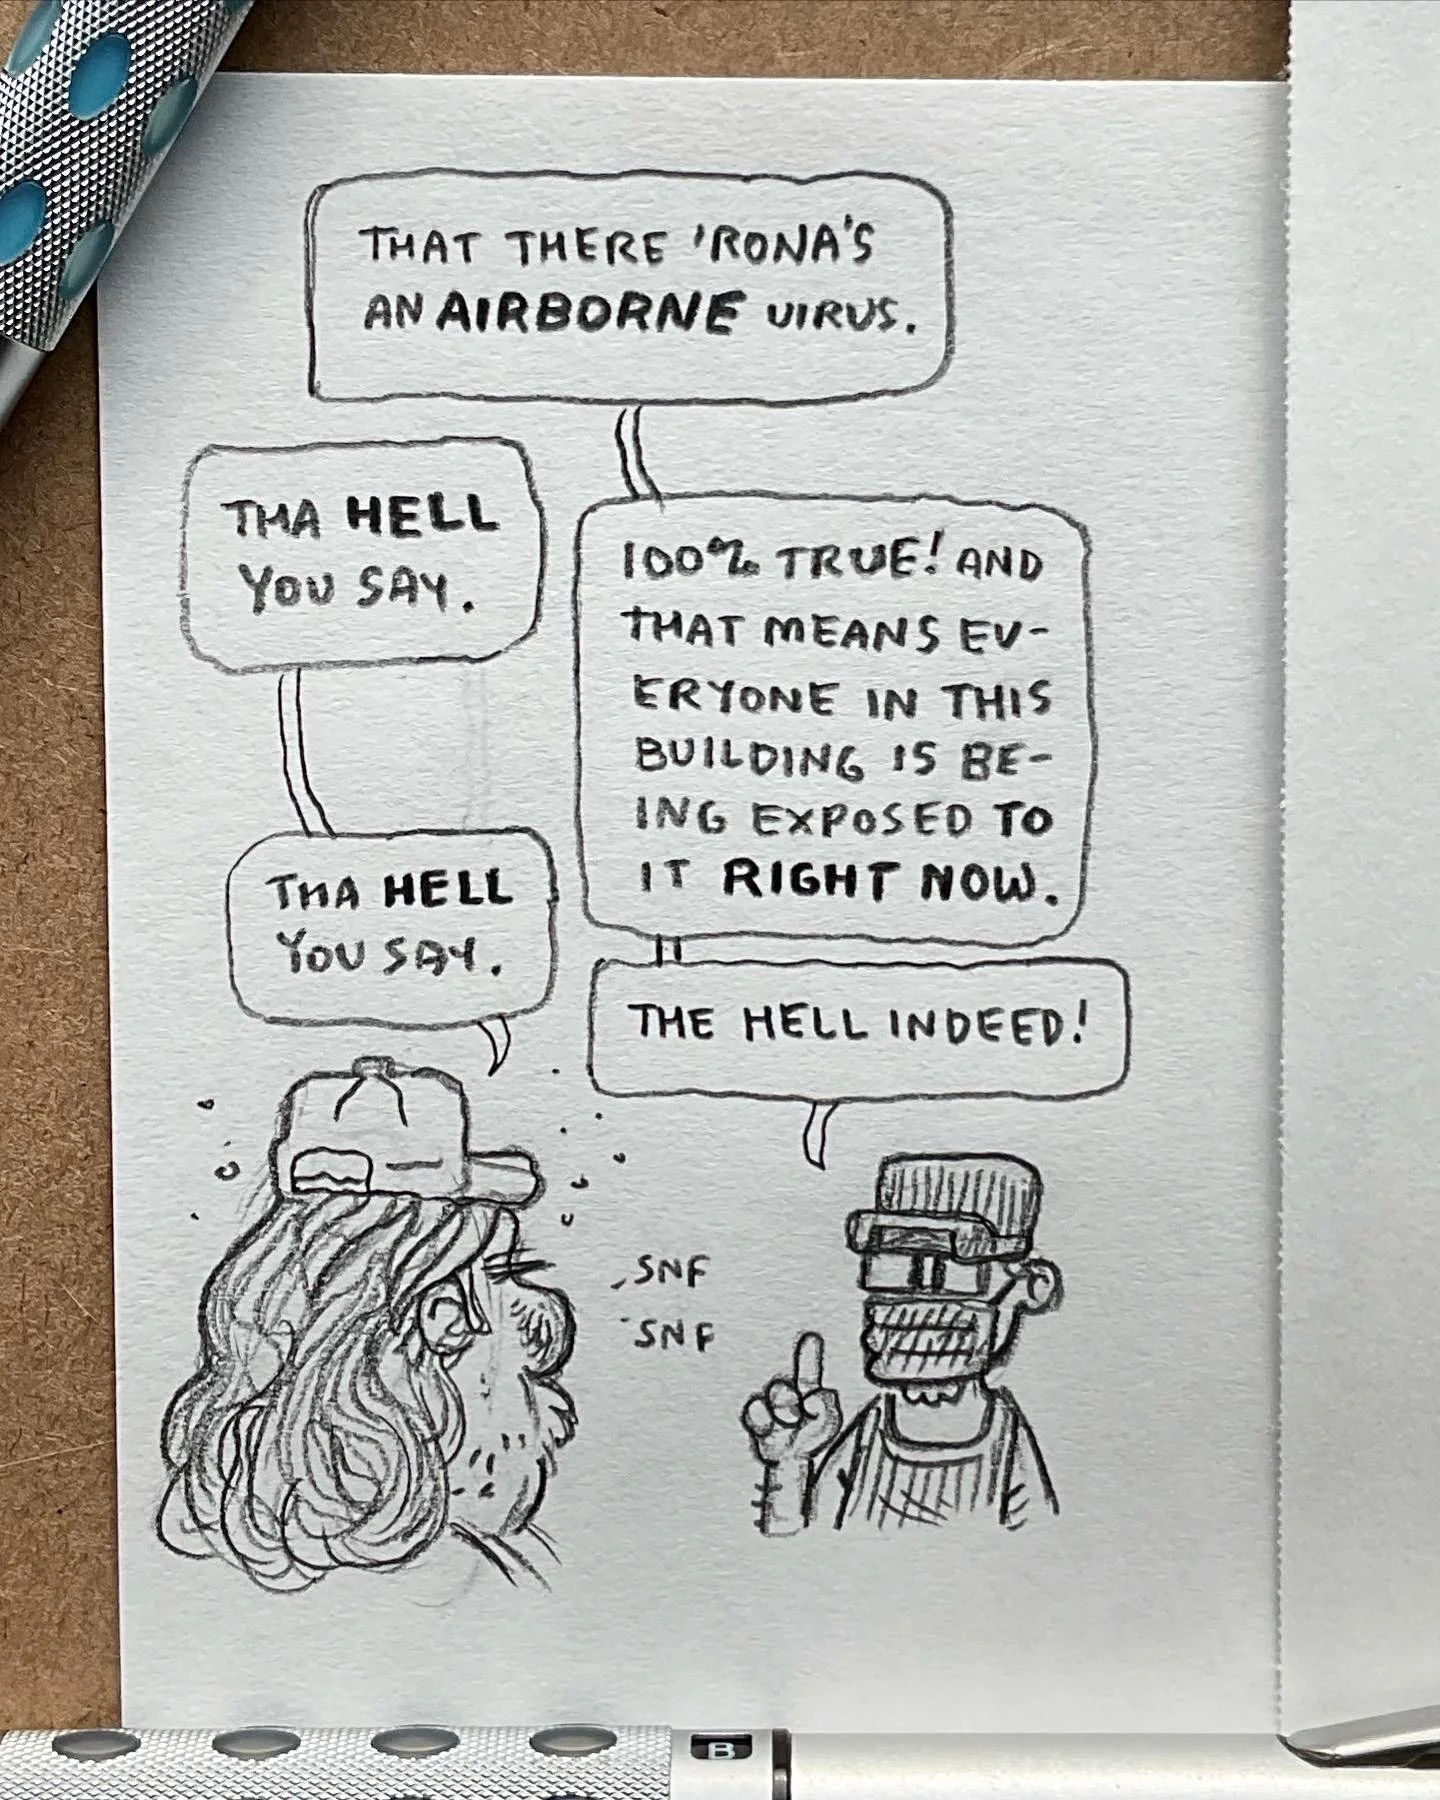 THAT THERE 'RONA'S
AN AIRBORNE VIRUS.
THA HELL
YOU SAY.
100% TRUE! AND
THAT MEANS EV-
ERYONE IN THIS
BUILDING IS BE-
ING EXPOSED TO
IT RIGHT NOW.
THA HELL
YOU SAY.
THE HELL INDEED!
SNF
SNF
B